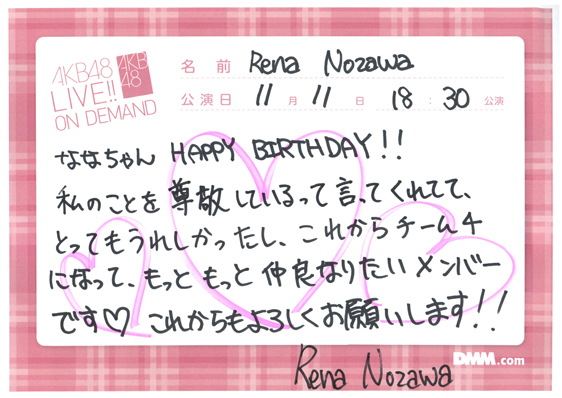 AKB48
LIVE!!
ON DEMAND
AKB
48
名 前 Rena Nozawa
公演日 11 月 11 日 18 : 30 公演
ななちゃん HAPPY BIRTHDAY!!
私のことを尊敬しているって言ってくれてて、
とってもうれしかったし、これからチーム4
になって、もっともっと仲良なりたいメンバー
です♡ これからもよろしくお願いします!!
Rena Nozawa
DMM.com